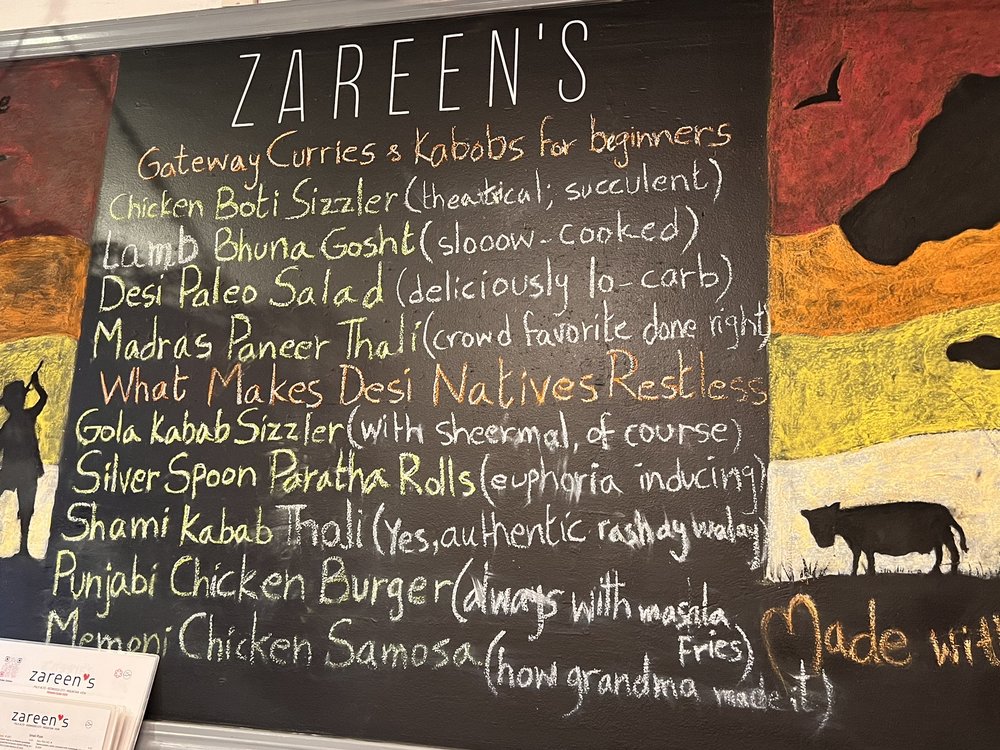 ZAREEN'S
Gateway Curries & Kabobs for beginners
Chicken Boti Sizzler (theatrical; succulent)
Lamb Bhuna Gosht (slooow-cooked)
Desi Paleo Salad (deliciously lo-carb)
Madras Paneer Thali (crowd favorite done right)
What Makes Desi Natives Restless
Gola Kabab Sizzler (with sheermal, of course)
Silver Spoon Paratha Rolls (euphoria inducing)
Shami Kabab Thali (Yes, authentic rashay walay)
Punjabi Chicken Burger (always with masala
Fries)
Memoni Chicken Samosa (how grandma made it)
Made with
zareen's
zareen's